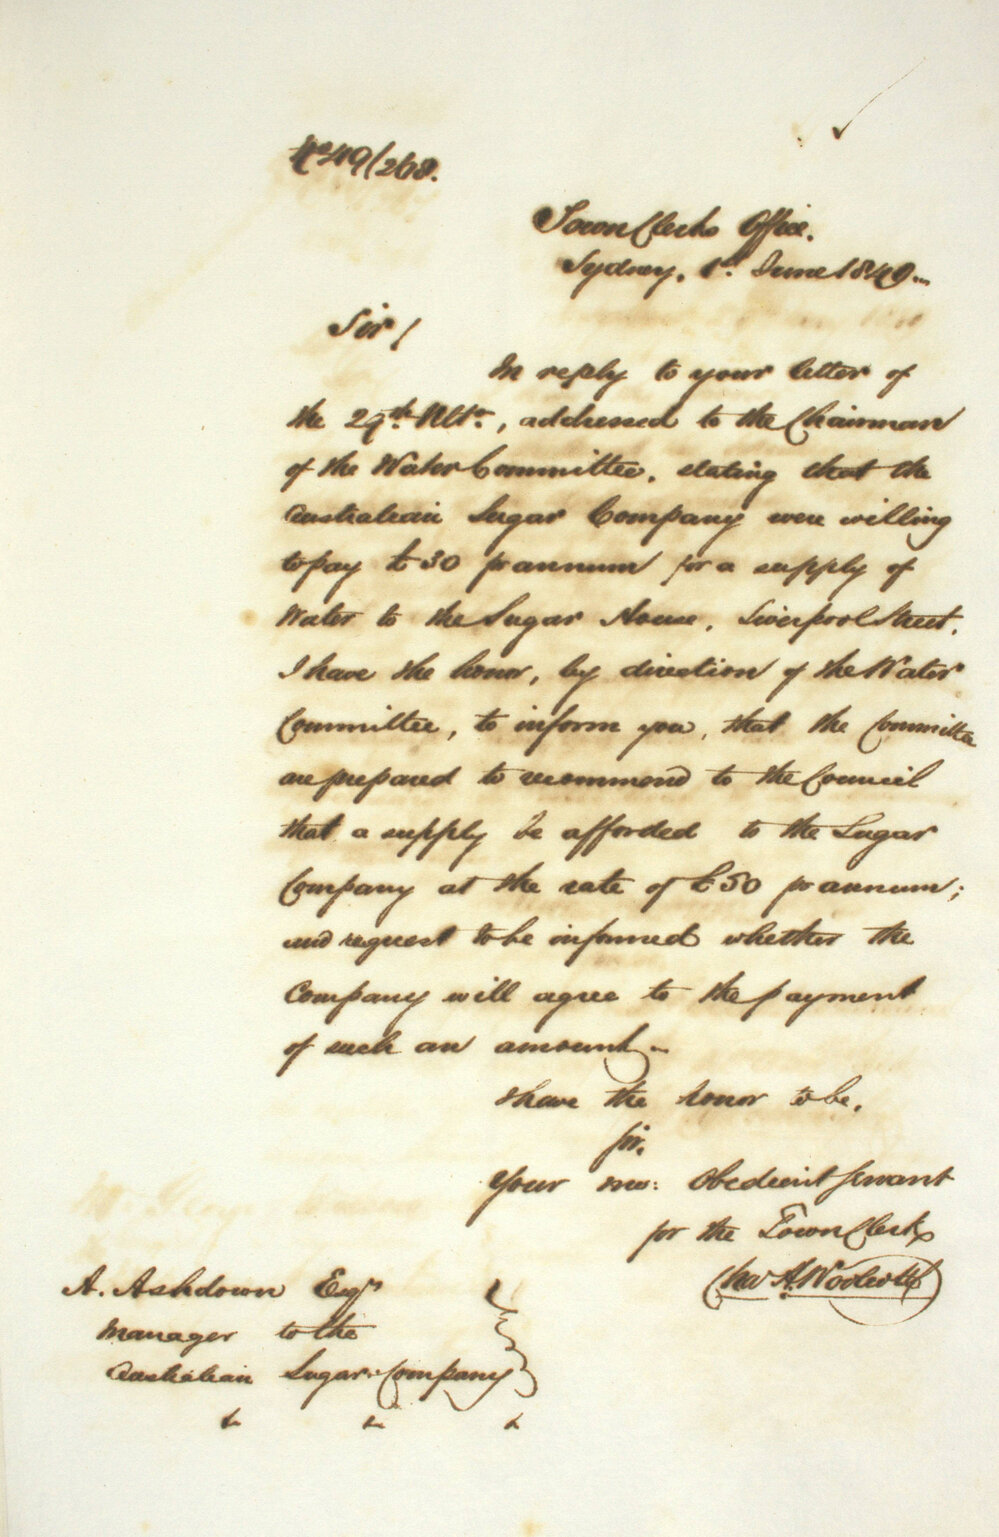 No 49/268.
Town Clerks Office.
Sydney. 1st. June 1849.
Sir/
In reply to your letter of
the 29th. Ulto., addressed to the Chairman
of the Water Committee, stating that the
Australian Sugar Company were willing
to pay £30 pr annum for a supply of
Water to the Sugar House, Liverpool Street.
I have the honor, by direction of the Water
Committee, to inform you, that the Committee
are prepared to recommend to the Council
that a supply be afforded to the Sugar
Company at the rate of £50 pr annum;
and request to be informed whether the
Company will agree to the payment
of such an amount.
I have the honor to be,
Sir,
Your mo: Obedient Servant
for the Town Clerk
Chas H. Woolcott
A. Ashdown Esqr
Manager to the
Australian Sugar Company
&c &c &c